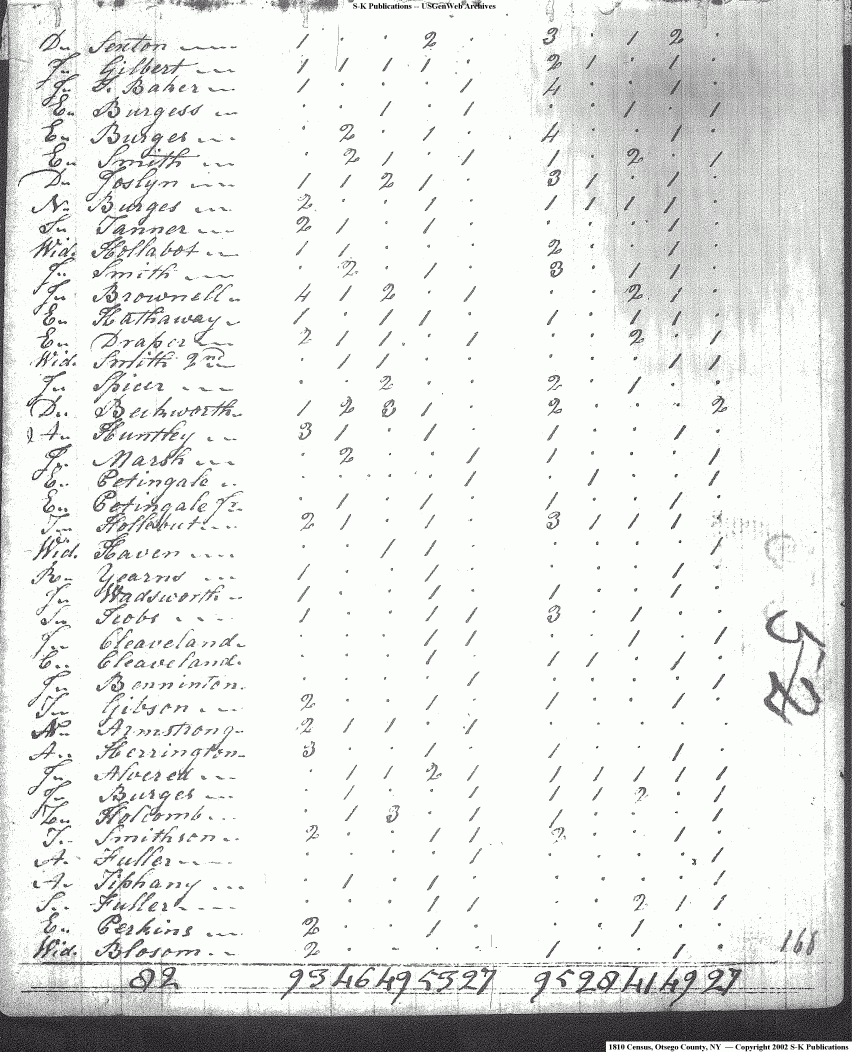 S-K Publications – USGenWeb Archives
D.. Sexton 1 . . 2 . 3 . 1 2 .
J.. Gilbert 1 1 1 1 . 2 1 . 1 .
J.. S. Baker 1 . . . 1 4 . . . .
E.. Burgess . . 1 . 1 . . 1 . 1
E.. Burges . 2 . 1 . 4 . . 1 .
E.. Smith . 2 1 . 1 1 . 2 . 1
D.. Joslyn 1 1 2 1 . 3 1 . 1 .
N.. Burges 2 . . 1 . 1 1 1 1 .
Tanner 2 1 . 1 . . . . 1 .
Wid. Hollabot 1 1 . . . 2 . . 1 .
J.. Smith . 2 . 1 . 3 . 1 1 .
J.. Brownell 4 1 2 . 1 . . 2 1 .
E.. Hathaway 1 . 1 1 . 1 . 1 1 .
E.. Draper 2 1 1 . 1 . . 2 . 1
Wid. Smith 2nd . 1 1 . . . . . 1 1
J.. Spicer . . 2 . . 2 . 1 . .
D.. Beckworth 1 2 3 1 . 2 . . . 2
A.. Huntley 3 1 . 1 . 1 . . 1 .
J.. Marsh . 2 . . 1 1 . . . 1
E.. Petingale . . . . 1 . 1 . . 1
E.. Petingale Jr. . 1 . 1 . 1 . . 1 .
Hollebut 2 1 . 1 . 3 1 1 1 .
Wid. Haven . . 1 1 . . . . . 1
R.. Yearns 1 . . 1 . . . . 1 .
J.. Wadsworth 1 . . 1 . 1 . . 1 .
1 . . 1 1 3 . 1 . .
J.. Cleaveland . . . 1 1 . . 1 . 1
C.. Cleaveland . . . 1 . 1 1 . 1 .
J.. Benninton . . . . 1 . . . . 1
Gibson 2 . . 1 . 1 . . 1 .
N.. Armstrong 2 1 1 . 1 . . . . .
A.. Herrington 3 . . 1 . . . . 1 .
J.. Alvered . 1 1 2 1 1 1 1 1 1
Burges . 1 . . 1 1 1 2 . 1
Z.. Holcomb . 1 3 . 1 1 . . . 1
Smithson 2 . . 1 1 2 . . 1 .
A. Fuller . . . . 1 . . . . 1
A. Tiphany . 1 . 1 . . . . . 1
S.. Fuller . . . 1 1 . . 2 1 1
E.. Perkins 2 . . 1 . . . 1 . .
Wid. Blosom 2 . . . . 1 . . 1 .
82 93 46 49 53 27 95 28 41 49 27
52
168
1810 Census, Otsego County, NY — Copyright 2002 S-K Publications